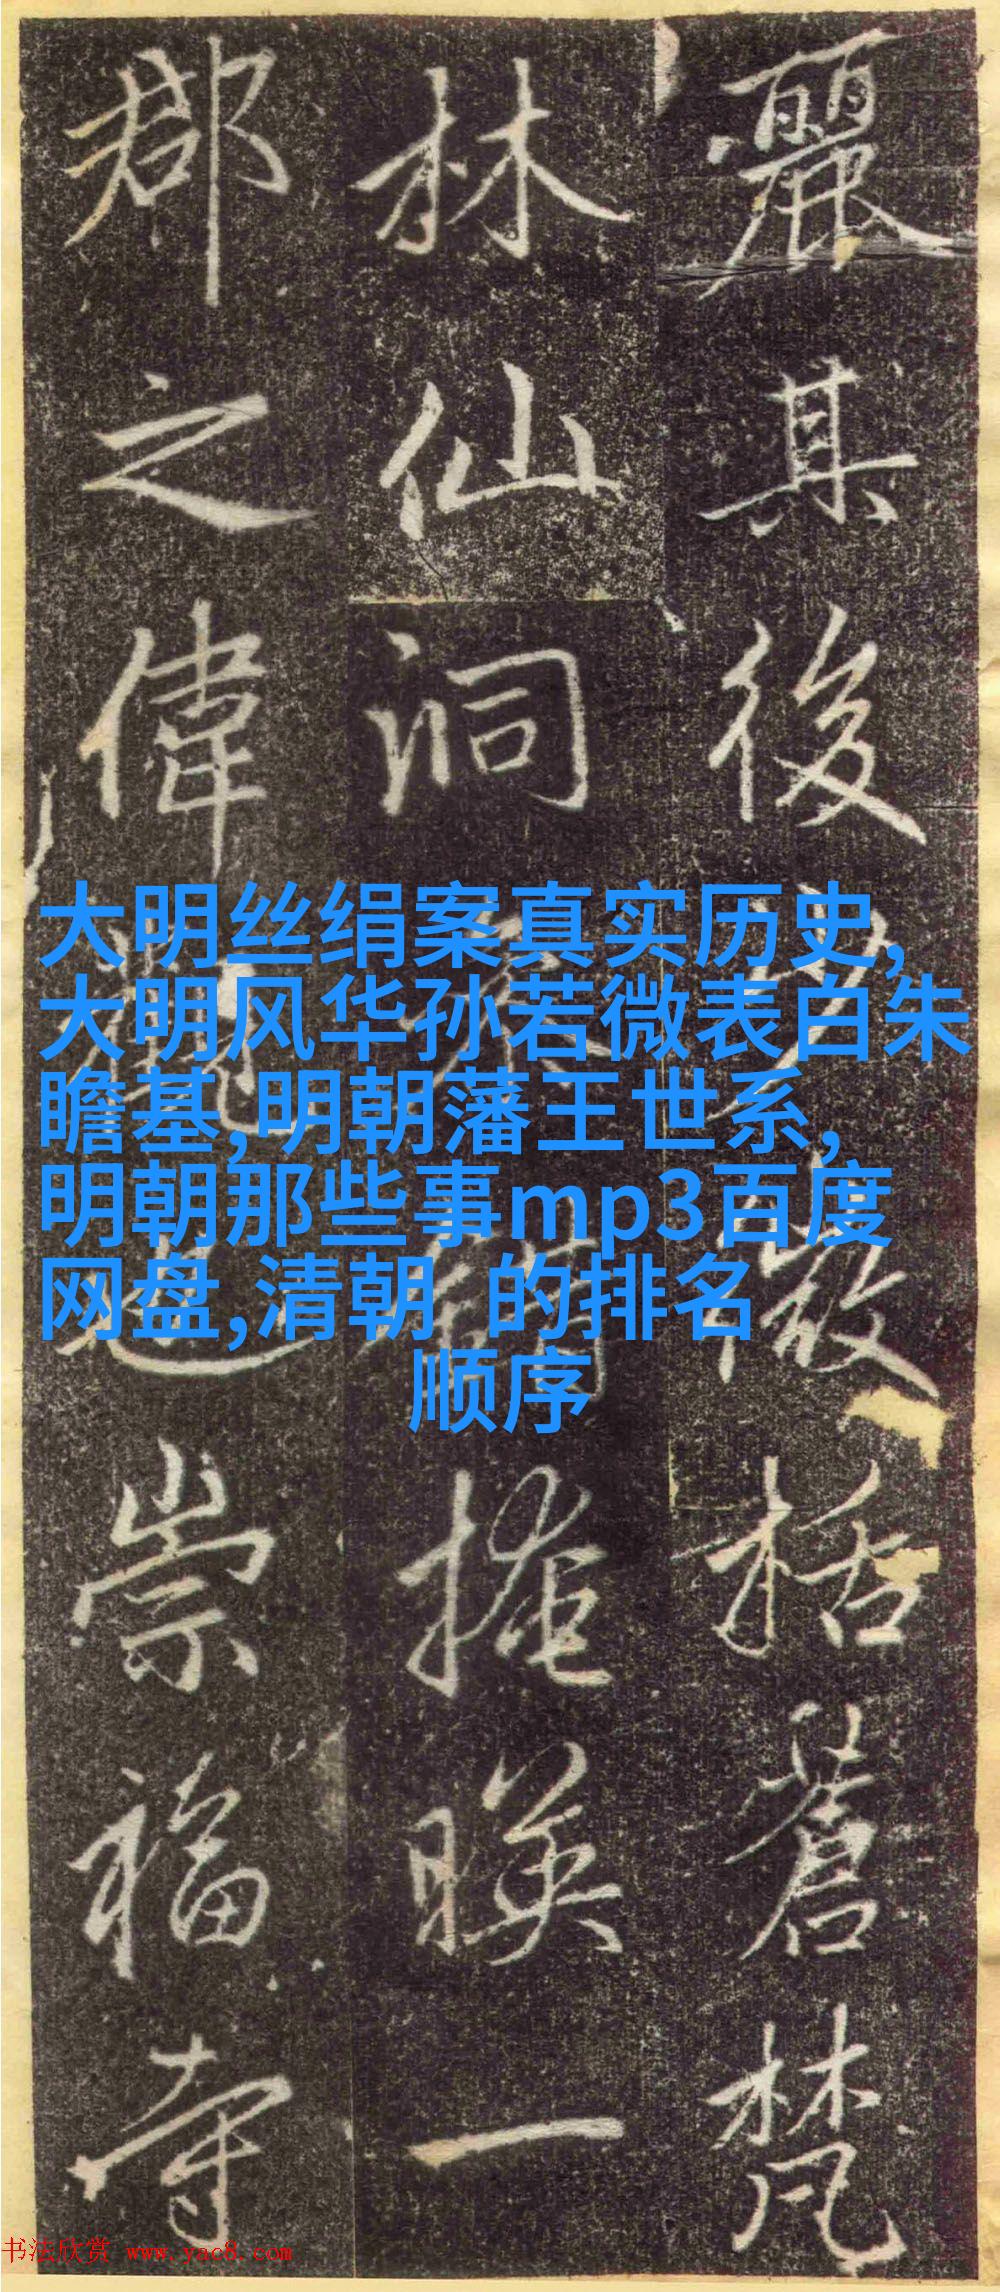 麗其後括蒼梵
林仙洞掩暎一
郡之偉崇福寺
大明丝绢案真实历史,
大明风华孙若微表白朱
瞻基,明朝藩王世系,
明朝那些事mp3百度
网盘,清朝 的排名
顺序
书法欣赏 www.yac8.com